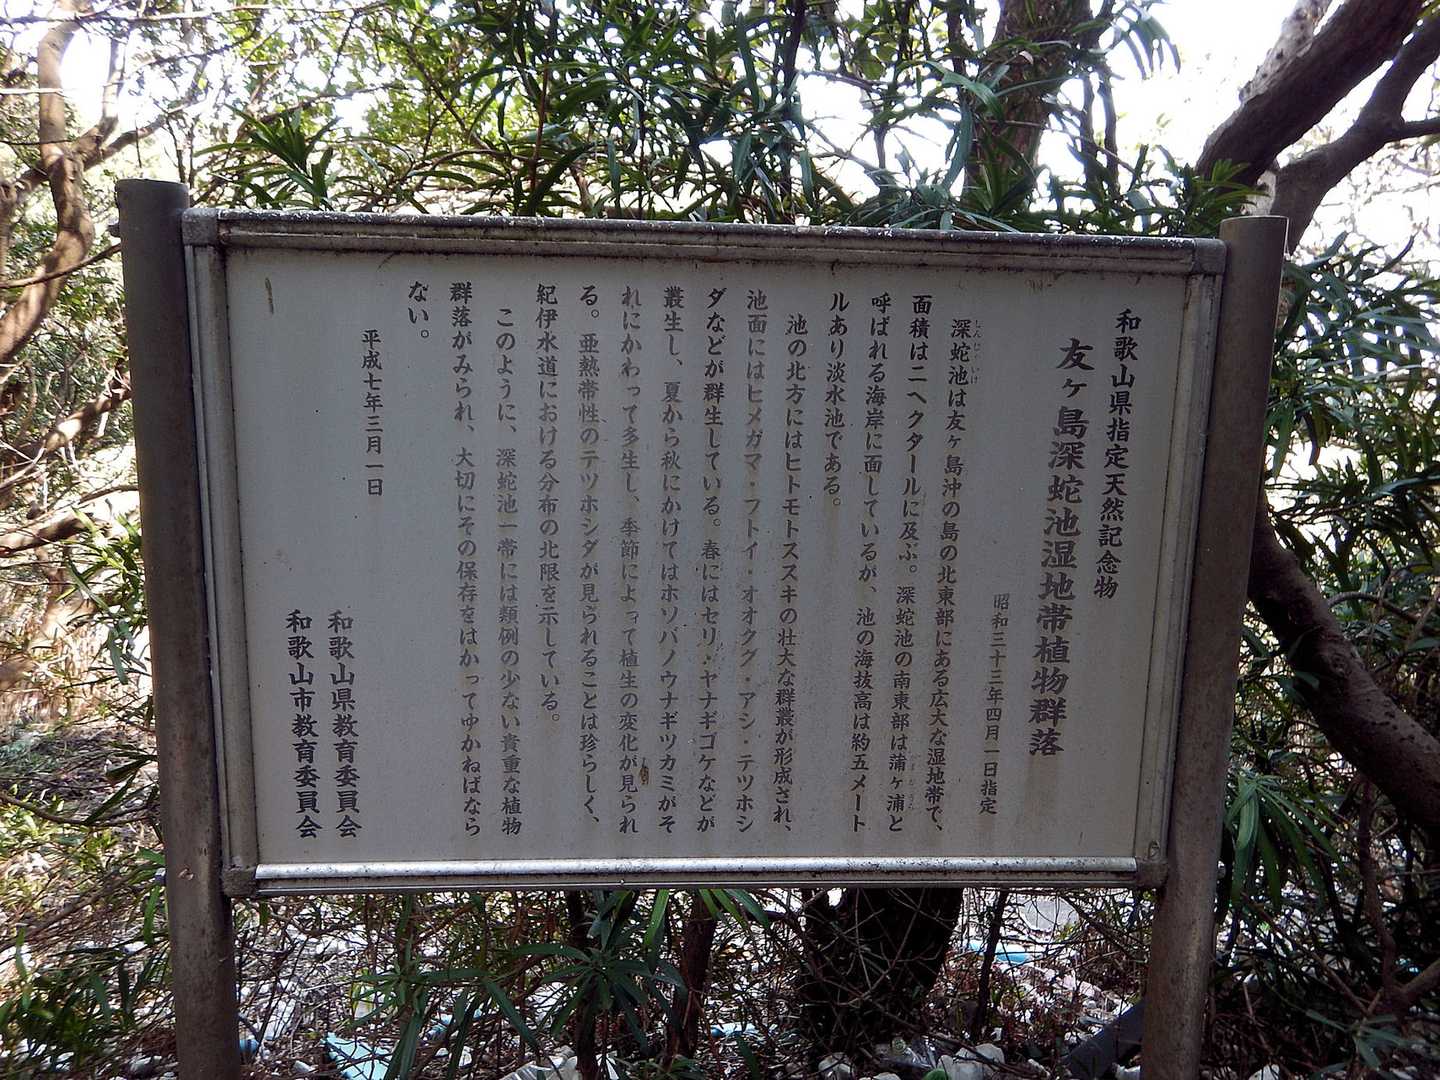 和歌山県指定天然記念物
友ヶ島深蛇池湿地帯植物群落
昭和三十三年四月一日指定
深蛇池は友ヶ島沖の島の北東部にある広大な湿地帯で、
しんじゃいけ
面積は二ヘクタールに及ぶ。深蛇池の南東部は蒲ヶ浦と
呼ばれる海岸に面しているが、池の海抜高は約五メート
ルあり淡水池である。
池の北方にはヒトモトススキの壮大な群叢が形成され、
池面にはヒメガマ・フトイ・オオクグ・アシ・テツホシ
ダなどが群生している。春にはセリ・ヤナギゴケなどが
叢生し、夏から秋にかけてはホソバノウナギツカミがそ
れにかわって多生し、季節によって植生の変化が見られ
る。亜熱帯性のテツホシダが見られることは珍らしく、
紀伊水道における分布の北限を示している。
このように、深蛇池一帯には類例の少ない貴重な植物
群落がみられ、大切にその保存をはかってゆかねばなら
ない。
平成七年三月一日
和歌山県教育委員会
和歌山市教育委員会